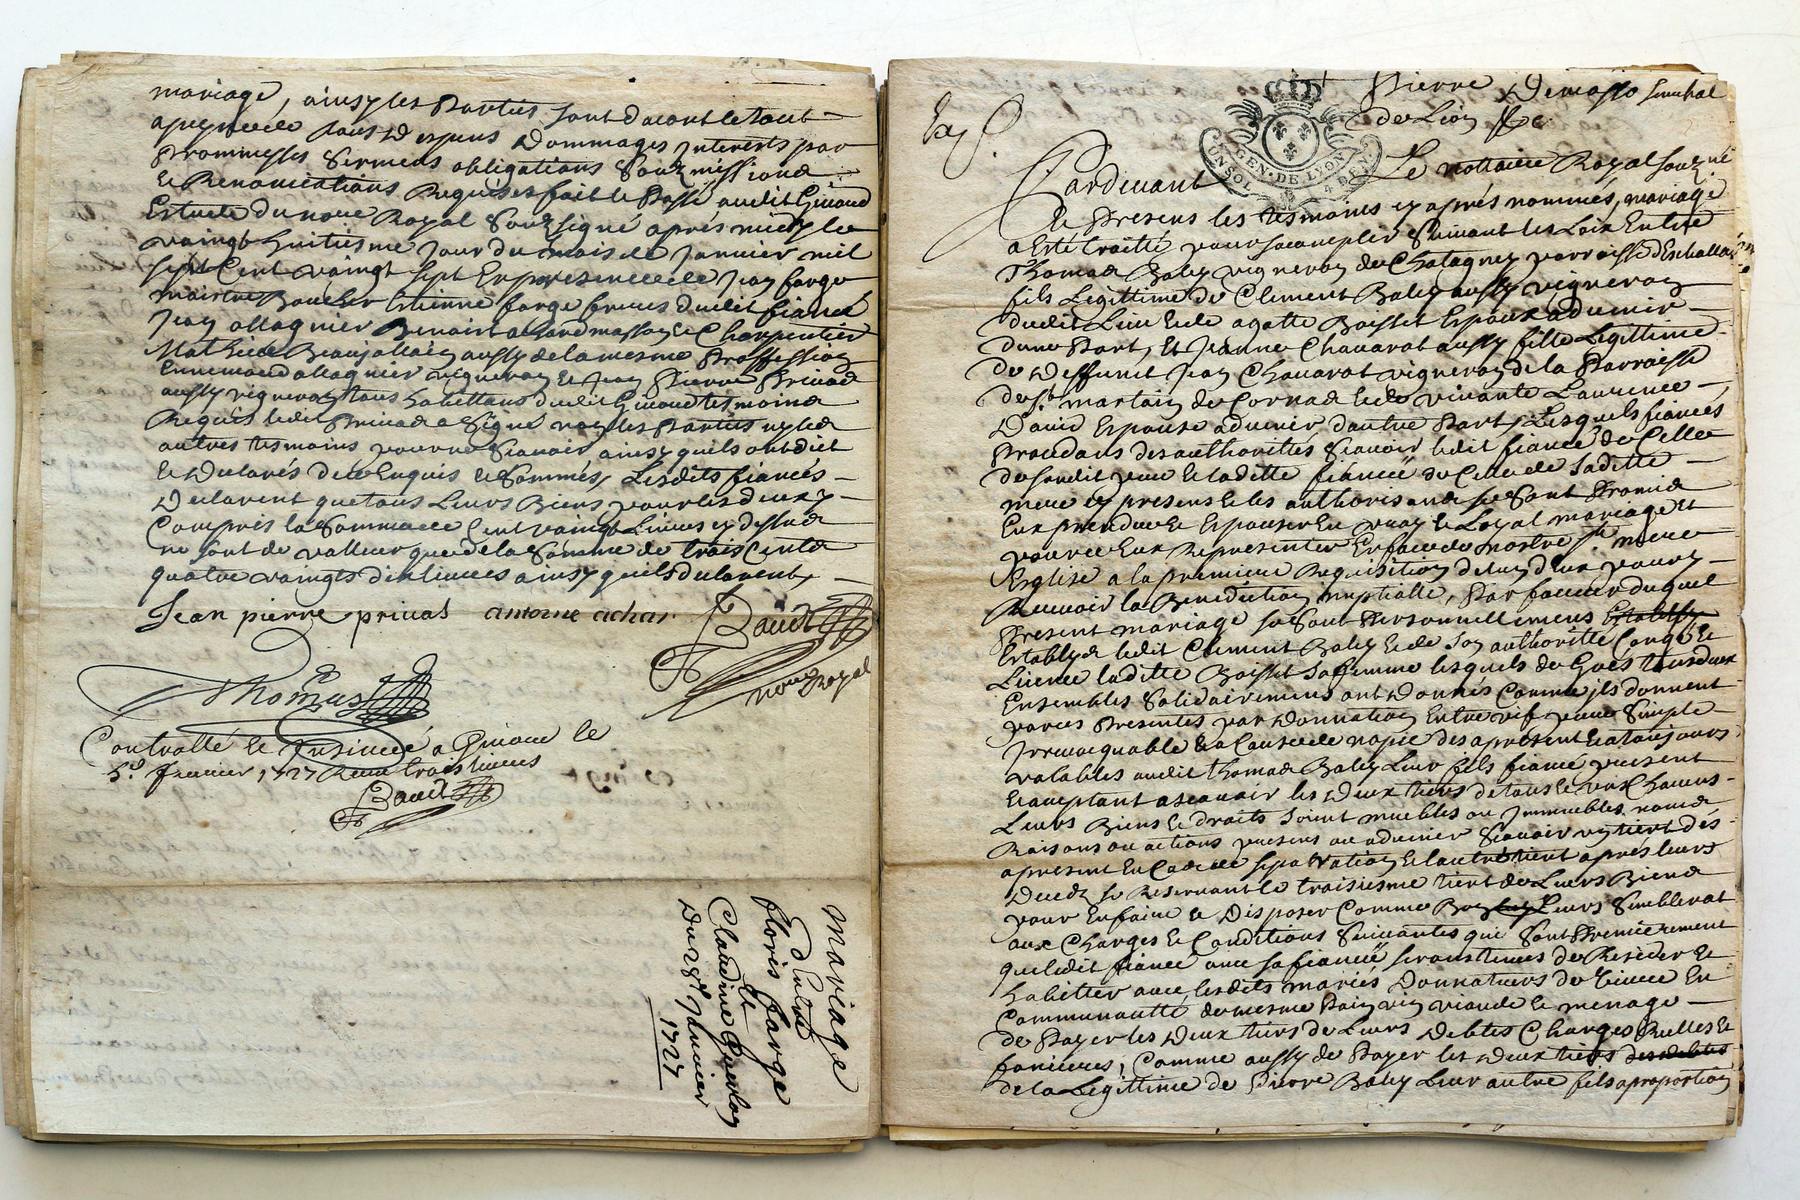 mariage, ainsy les Parties sont dacort le tout
apeynede tous Despens Dommages Interests par
Prommesses Sermens obligations Souzmissions
et Renonciations Requises fait et Passé audit Givord
Estude du no.re Royal Souzsigné après midy le
vaingt huitiesme Jour du mois de Janvier mil
sept Cent vaingt sept En presence de Jean farge
maistre Boucher Etienne farge freres dudit fiancé
Jean allagnier Benoist achard masson et Charpentier
Mathieu Beaujollain aussy de la mesme Proffession
Ennemond allagnier vigneron et Jean Pierre Privad
aussy vigneron tous habittans dudit Givord tesmoins
Requis ledit Privad a Signé non les Parties ny les
autres tesmoins pour ne Scavoir ainsy quils ont dit
et Declarés de ce Enquis et Sommés, Lesdits fiancés
Declarent que tous Leurs Biens pour les deux y
Compris la Somme de Cent vaingt Livres cy dessus
ne sont de valleur que de la Somme de trois Cents
quatre vaingts dix livres ainsy quils declarent,
Jean pierre privat antoine achar Baudt
no.re Royal
Thomas
Controllé et Insinué a Givord le
3.e fevrier 1727 Receu trois livres
Baudt
Mariage
d'Entre
floris farge
Et
Claudine
Du 28.e Janvier
1727
Pierre Demasso Senechal
de Lion &c.
GEN. DE LYON
UN SOL 4 DEN.
Pardevant Le nottaire Royal Souzigné
et Presens les tesmoins cy après nommés, mariage
a Esté traitté pour saccomplir Suivant les Loix Entre
Thomas Baley vigneron de Chatagney parroisse d'Eschallas
fils Legittime de Clement Baley aussy vigneron
dudit Lieu et de agatte Boisset Espoux advenir
dune Part, Et Jeanne Chavarot aussy fille Legittime
de Deffunct Jean Chavarot vigneron de la Parroisse
de S.t martain de Cornas et de vivante Laurence
David Espouse advenir dautre Part, Lesquels fiancés
Procedants des authorittés Scavoir ledit fiancé de Celle
de sondit pere et laditte fiancée de Celle de Saditte
mere cy presens et les authorisands se Sont Promis
Eux prendre et Espouser En vray et Loyal mariage et
pour ce Eux Representer En face de nostre S.te mere
Esglise a la premiere Requisition de lun deux pour y
Recevoir la Benediction nuptialle, Par faveur duquel
Present mariage se Sont Personnellement Establys
Establys ledit Clement Baley et de Son authoritté Congé et
Licence laditte Boisset Sa femme lesquels de Grés tous deux
Ensembles Solidairement ont Donnés Comme jls donnent
par ces Presentes par Donnation Entre vif pure Simple
Jrrevocquable et a Cause de nopce des apresent et a tousjours
valables audit thomas Baley Leur fils fiancé present
et aceptant ascavoir les Deux tiers de tous et un Chacuns
Leurs Biens et droits Soient meubles ou Jmmeubles noms
Raisons ou actions presens ou advenir Scavoir un tiert dès
apresent En Cas de separation et lautre tiert après leurs
Decedz se Reservant le troisiesme tiert de Leurs Biens
pour En faire et Disposer Comme Bon Leurs Semblerat
aux Charges et Conditions Suivantes qui Sont Premierement
que ledit fiancé avec sa fiancée seront tenus de Resider et
habitter avec lesdits mariés Donnateurs de vivre En
Communautté de mesme Pain vin viande et menage
de Payer les Deux tiers de Leurs Debtes Charges Reelles et
foncieres, Comme aussy de Payer les deux tiers des debtes
de la Legittime de Pierre Baley Leur autre fils aproportion